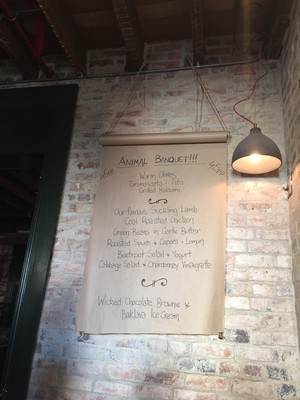 ANIMAL BANQUET!!!
Warm Olives
Taramasalata + Pita
Grilled Haloumi
Our Famous Suckling Lamb
Coal Roasted Chicken
Green Beans in Garlic Butter
Roasted Squash + Capers + Lemon
Beetroot Salad + Yogurt
Cabbage Salad + Chardonnay Vinaigrette
Wicked Chocolate Brownie &
Baklava Ice Cream